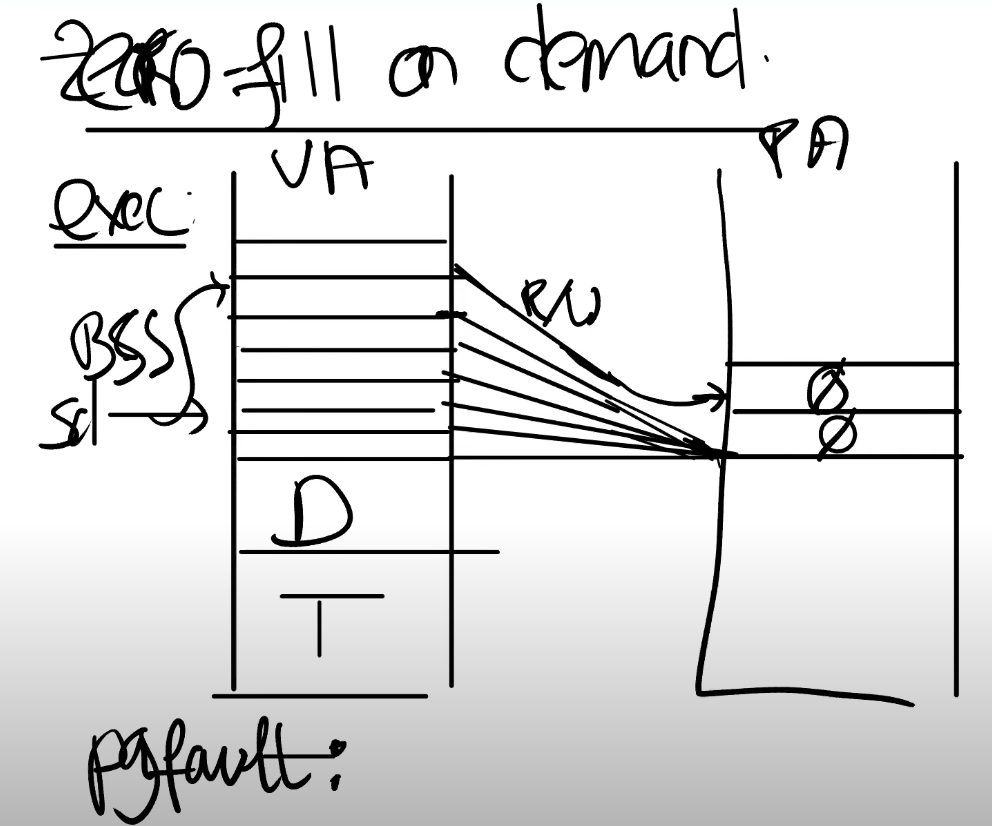 zero-fill on demand.
VA
PA
exec:
R/W
BSS
Ø
Ø
D
T
pgfault: